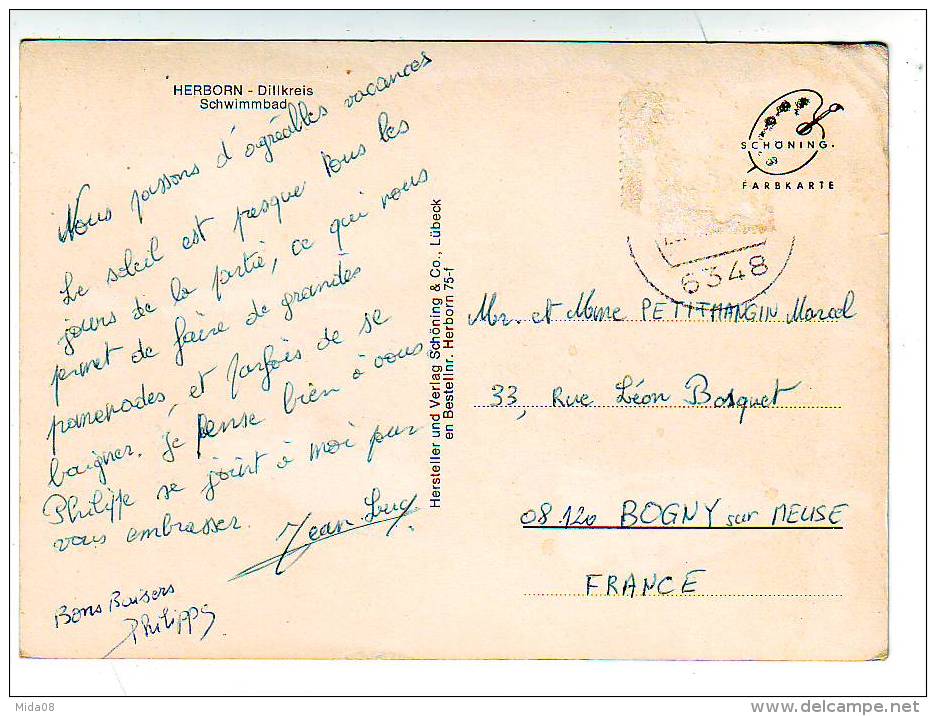 HERBORN - Dillkreis
Schwimmbad
Nous passons d'agréables vacances
Le soleil est presque tous les
jours de la partie, ce qui nous
permet de faire de grandes
promenades, et parfois de se
baigner. Je pense bien à vous
Philippe se joint à moi pour
vous embrasser.
Jean Luc
Bons Baisers
Philippe
Hersteller und Verlag Schöning & Co., Lübeck
en Bestellnr. Herborn 75-f
SCHÖNING.
FARBKARTE
6348
Mr. et Mme PETITMANGIN Marcel
33, Rue Léon Bosquet
08.120 BOGNY sur MEUSE
FRANCE
Mida08
www.delcampe.net